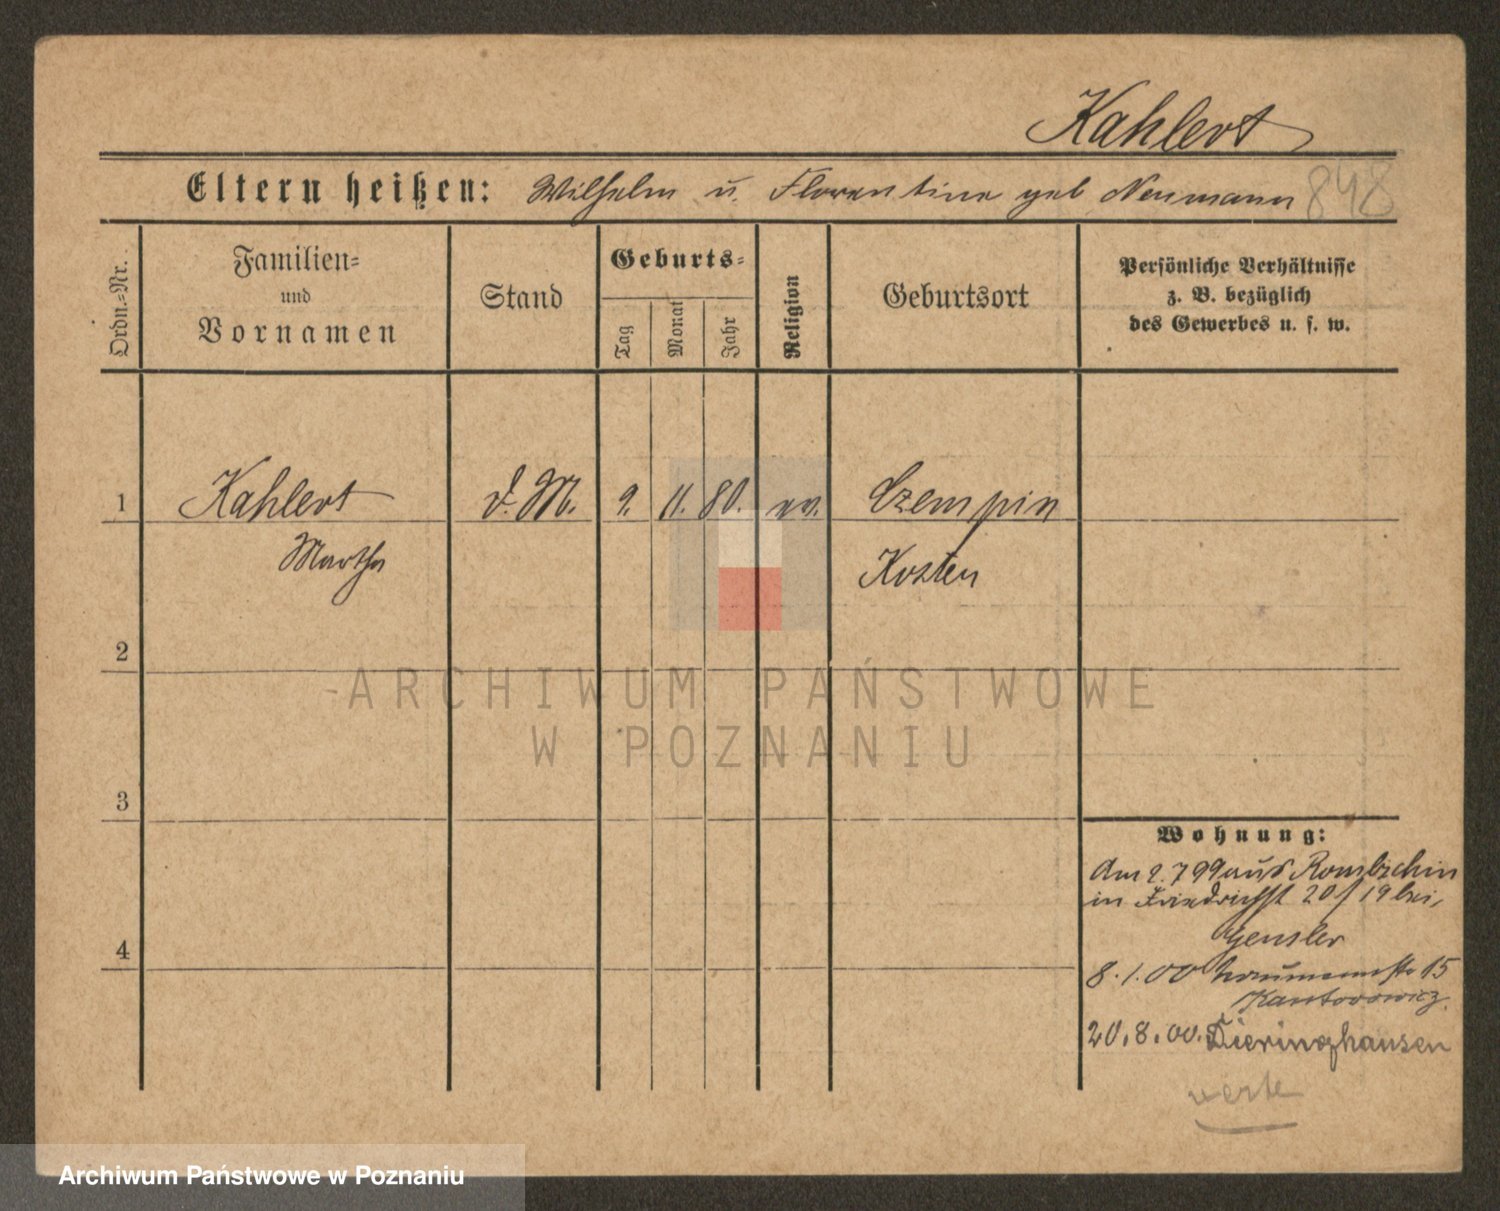 Kahlert
Eltern heißen: Wilhelm u. Florentine geb Neumann 848
Ordn.=Nr.
Familien=
und
Vornamen
Stand
Geburts=
Tag
Monat
Jahr
Religion
Geburtsort
Persönliche Verhältnisse
z. B. bezüglich
des Gewerbes u. s. w.
1 Kahlert d. M. 9. 11. 80. ev. Czempin
Martha Kosten
2
ARCHIWUM PAŃSTWOWE
W POZNANIU
3
Wohnung:
Am 2.7 99 aus
in Friedrichst 20 / 19 bei,
Gensler
4
8.1.00 Naumannstr 15
Kantorowicz.
20.8.00. Dieringhausen
verte
Archiwum Państwowe w Poznaniu